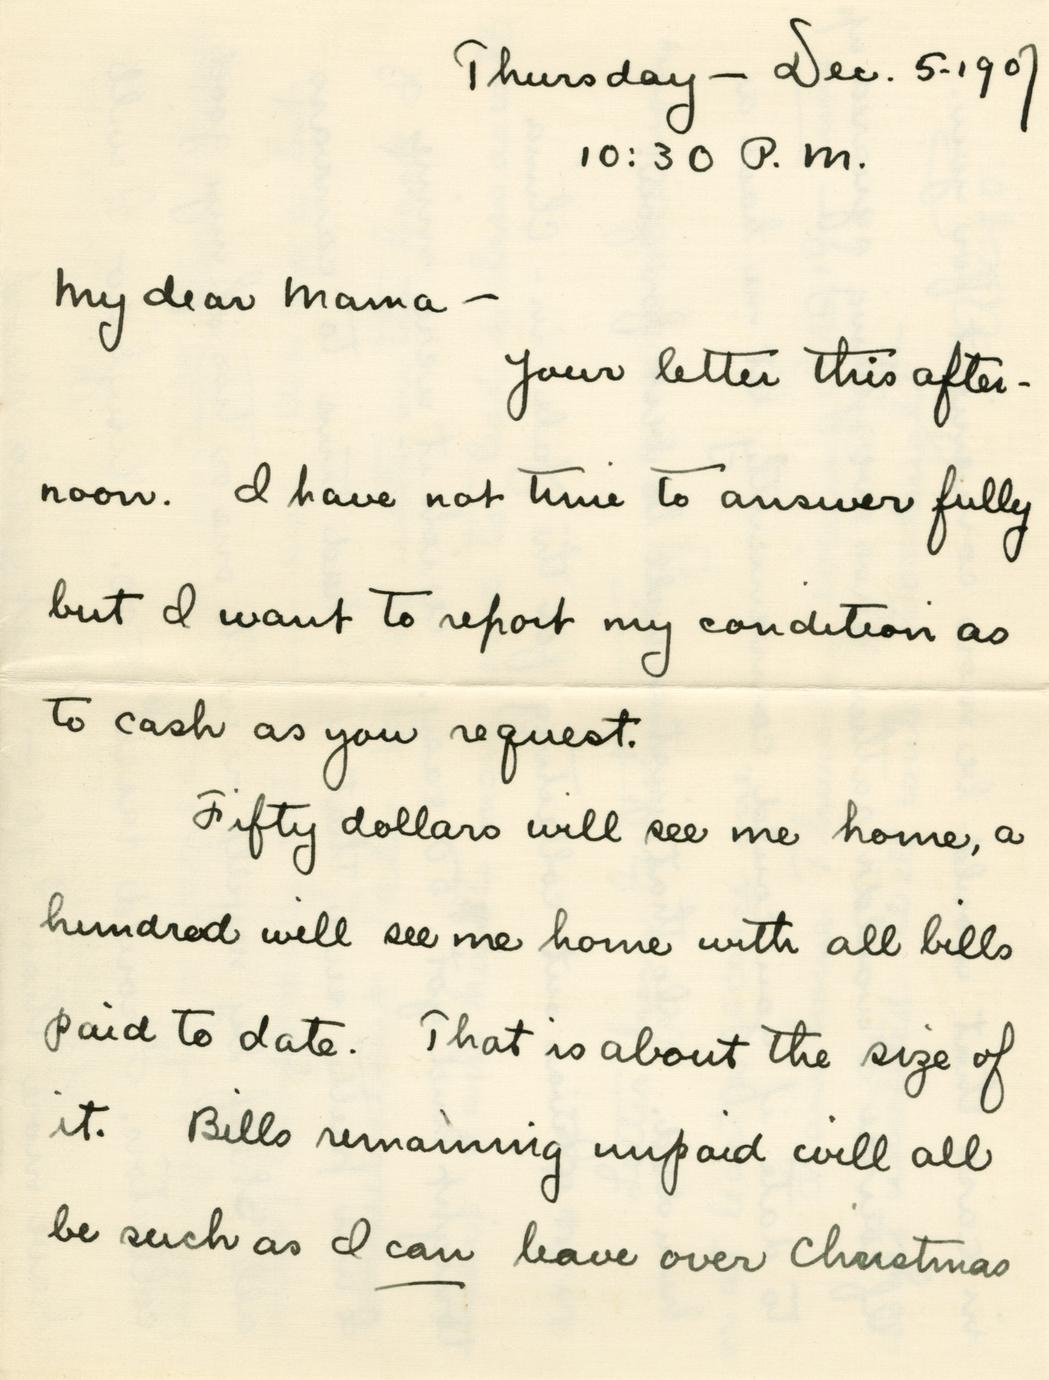 Thursday — Dec. 5-1907
10:30 P. M.
My dear Mama —
Your letter this after-
noon. I have not time to answer fully
but I want to report my condition as
to cash as you request.
Fifty dollars will see me home, a
hundred will see me home with all bills
paid to date. That is about the size of
it. Bills remaining unpaid will all
be such as I can leave over Christmas